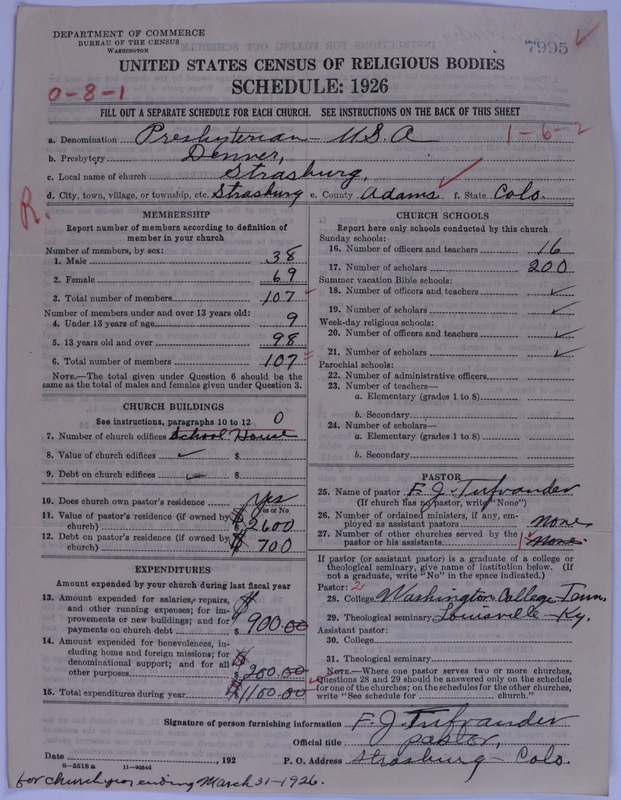 DEPARTMENT OF COMMERCE
BUREAU OF THE CENSUS
WASHINGTON
7995
UNITED STATES CENSUS OF RELIGIOUS BODIES
SCHEDULE: 1926
0-8-1
FILL OUT A SEPARATE SCHEDULE FOR EACH CHURCH. SEE INSTRUCTIONS ON THE BACK OF THIS SHEET
a. Denomination Presbyterian - U.S.A
1-6-2
b. Presbytery Denver,
c. Local name of church Strasburg,
d. City, town, village, or township, etc. Strasburg e. County Adams f. State Colo.
R.
MEMBERSHIP
Report number of members according to definition of
member in your church
Number of members, by sex:
1. Male 38
2. Female 69
3. Total number of members 107
Number of members under and over 13 years old:
4. Under 13 years of age 9
5. 13 years old and over 98
6. Total number of members 107
NOTE.—The total given under Question 6 should be the
same as the total of males and females given under Question 3.
CHURCH BUILDINGS
See instructions, paragraphs 10 to 12 0
7. Number of church edifices School House
8. Value of church edifices $
9. Debt on church edifices $
10. Does church own pastor's residence yes
Yes or No
11. Value of pastor's residence (if owned by
church) $ 2600
12. Debt on pastor's residence (if owned by
church) $ 700
EXPENDITURES
Amount expended by your church during last fiscal year
13. Amount expended for salaries, repairs,
and other running expenses; for im-
provements or new buildings; and for
payments on church debt $ 900.00
14. Amount expended for benevolences, in-
cluding home and foreign missions; for
denominational support; and for all
other purposes $ 200.00
15. Total expenditures during year $ 1100.00
CHURCH SCHOOLS
Report here only schools conducted by this church
Sunday schools:
16. Number of officers and teachers 16
17. Number of scholars 200
Summer vacation Bible schools:
18. Number of officers and teachers
19. Number of scholars
Week-day religious schools:
20. Number of officers and teachers
21. Number of scholars
Parochial schools:
22. Number of administrative officers
23. Number of teachers—
a. Elementary (grades 1 to 8)
b. Secondary
24. Number of scholars—
a. Elementary (grades 1 to 8)
b. Secondary
PASTOR
25. Name of pastor F. J.
(If church has no pastor, write "None")
26. Number of ordained ministers, if any, em-
ployed as assistant pastors none
27. Number of other churches served by the
pastor or his assistants 1 none
If pastor (or assistant pastor) is a graduate of a college or
theological seminary, give name of institution below. (If
not a graduate, write "No" in the space indicated.)
Pastor: 2
28. College Washington College Tenn,
29. Theological seminary Louisville - Ky.
Assistant pastor:
30. College
31. Theological seminary
NOTE.—Where one pastor serves two or more churches,
Questions 28 and 29 should be answered only on the schedule
for one of the churches; on the schedules for the other churches,
write "See schedule for church."
Signature of person furnishing information F. J.
Official title pastor,
Date , 192 P. O. Address Strasburg - Colo.
8—5518 a
for church year ending March 31-1926.